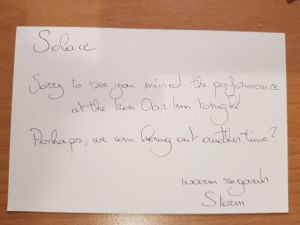 Solace
Sorry to see you missed the performance
at the Iron Oar Inn tonight.
Perhaps, we can hang out another time?
warm regards
Storm